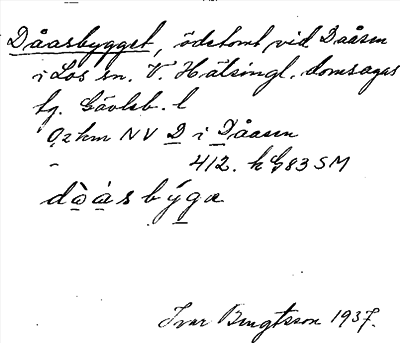 Dåasbygget, ödetomt vid Daåsen
i Los sn. V. Hälsingl. domsagas
tg. Gävleb. l
0,2 km NV D i Dåasen
" 412. k G83 SM
dòàsbýga
Ivar Bengtsson 1937.